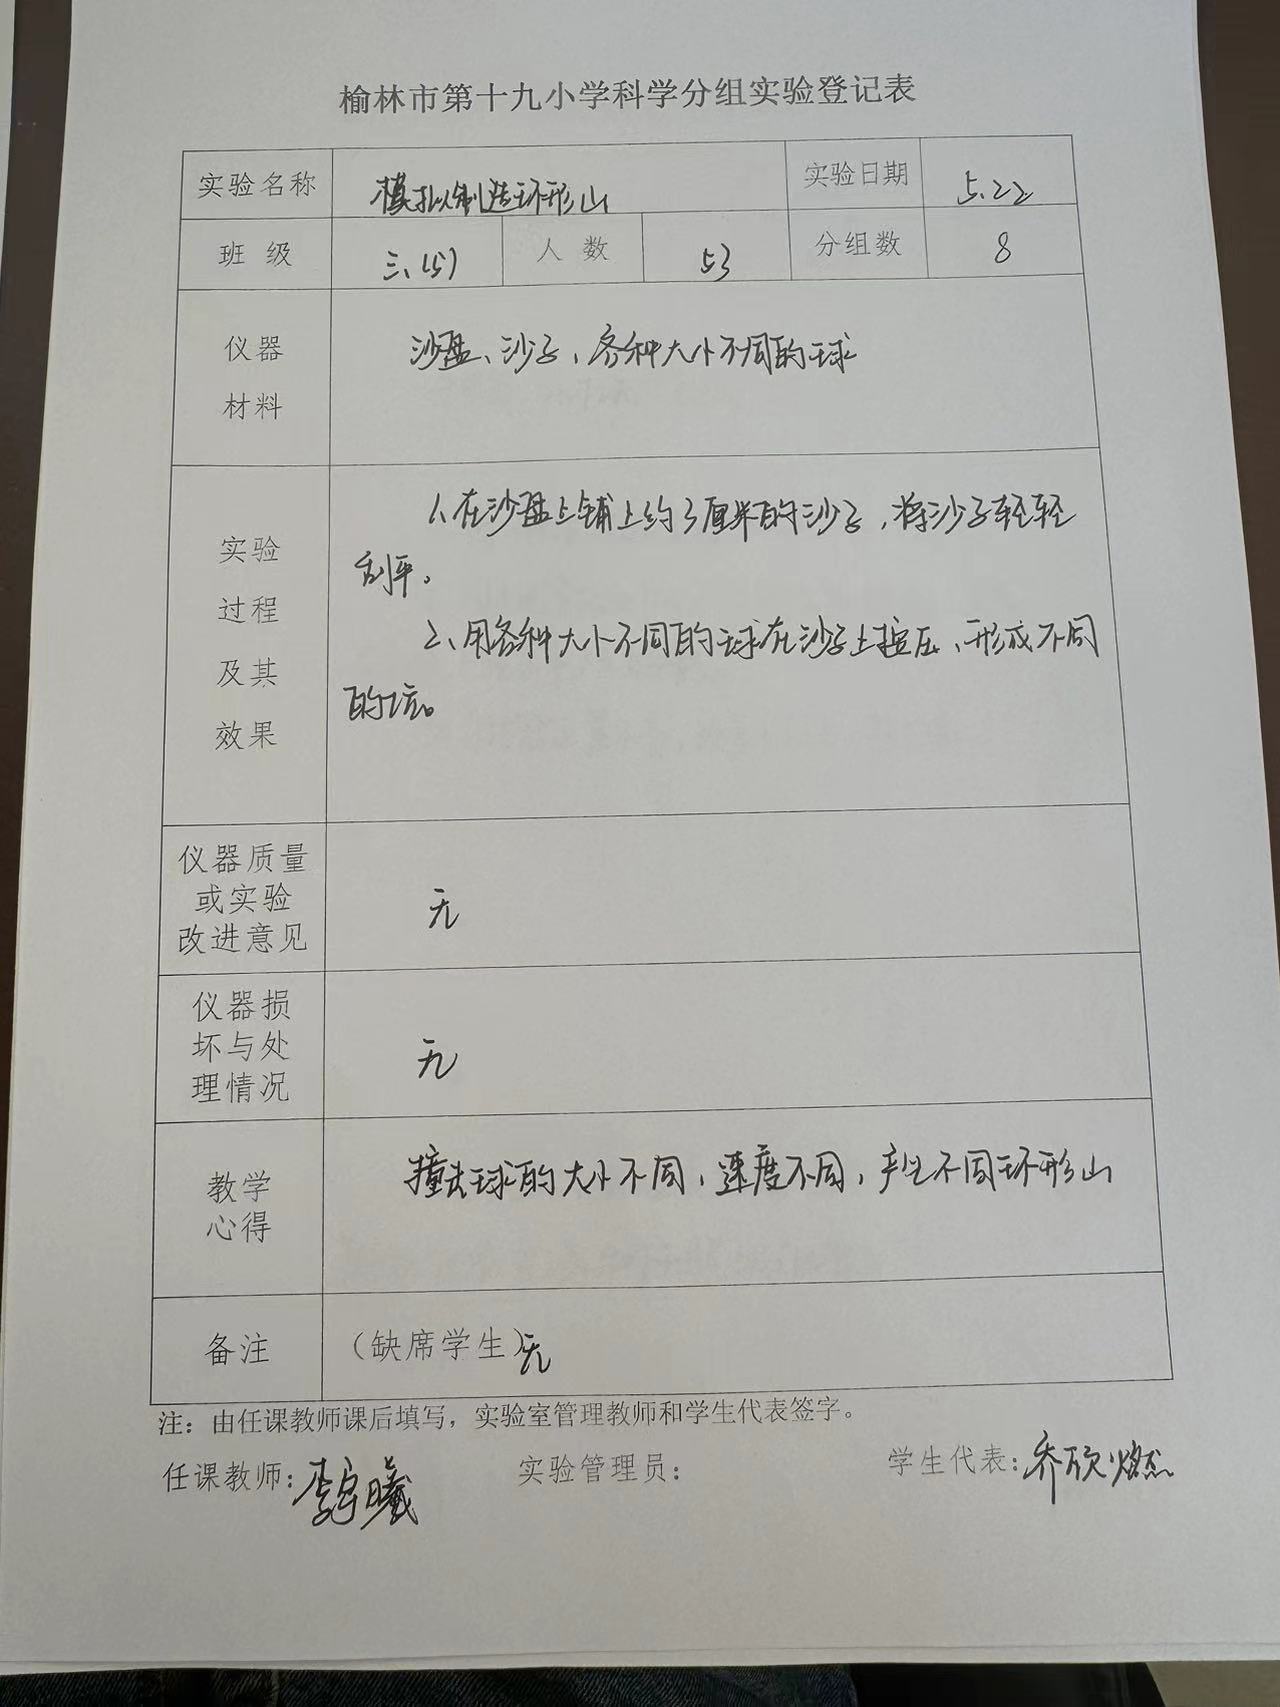 榆林市第十九小学科学分组实验登记表
实验名称 模拟制造环形山 实验日期 5.22
班 级 三.(5) 人 数 53 分组数 8
仪器
材料
沙盘、沙子、各种大小不同的球
实验
过程
及其
效果
1、在沙盘上铺上约3厘米的沙子，将沙子轻轻
刮平。
2、用各种大小不同的球在沙子上按压、形成不同
的坑。
仪器质量
或实验
改进意见
无
仪器损
坏与处
理情况
无
教学
心得
撞击球的大小不同，速度不同，产生不同环形山
备注 （缺席学生）无
注：由任课教师课后填写，实验室管理教师和学生代表签字。
任课教师： 实验管理员： 学生代表：乔欣燃